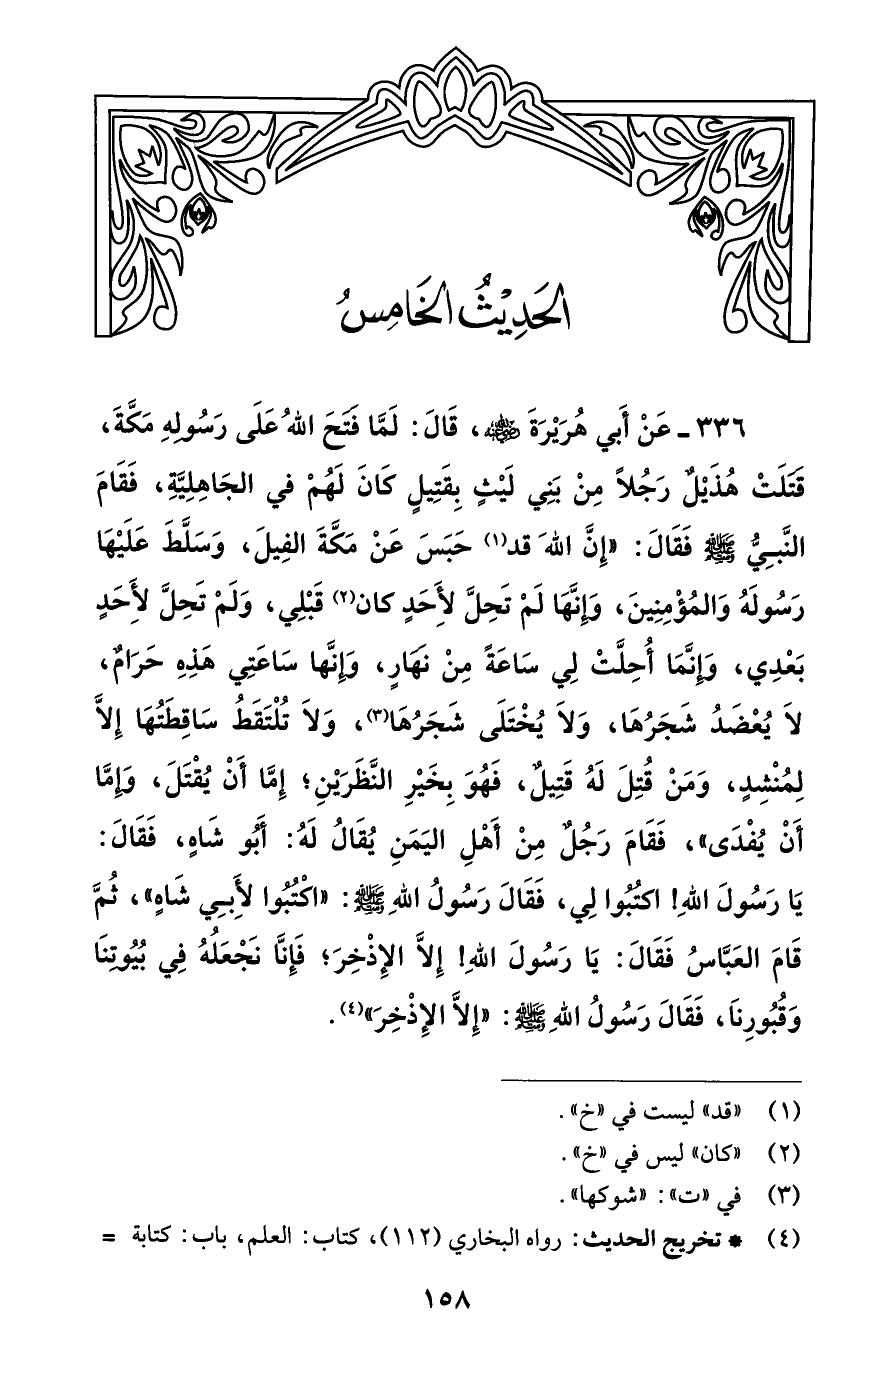 الحَدِيْثُ الخَامِسُ
٣٣٦ ـ عَنْ أَبي هُرَيْرَةَ ﵁، قَالَ: لَمَّا فَتَحَ اللهُ عَلَى رَسُولِهِ مَكَّةَ،
قَتَلَتْ هُذَيْلٌ رَجُلاً مِنْ بَنِي لَيْثٍ بِقَتِيلٍ كَانَ لَهُمْ في الجَاهِليَّةِ، فَقَامَ
النَّبِيُّ ﷺ فَقَالَ: «إِنَّ اللهَ قد(١) حَبَسَ عَنْ مَكَّةَ الفِيلَ، وَسَلَّطَ عَلَيْهَا
رَسُولَهُ وَالمُؤْمِنِينَ، وَإِنَّهَا لَمْ تَحِلَّ لأَحَدٍ كان(٢) قَبْلِي، وَلَمْ تَحِلَّ لأَحَدٍ
بَعْدِي، وَإِنَّمَا أُحِلَّتْ لِي سَاعَةً مِنْ نَهَارٍ، وَإِنَّها سَاعَتِي هَذِهِ حَرَامٌ،
لاَ يُعْضَدُ شَجَرُهَا، وَلاَ يُخْتَلَى شَجَرُهَا(٣)، وَلاَ تُلْتَقَطُ سَاقِطَتُهَا إِلاَّ
لِمُنْشِدٍ، وَمَنْ قُتِلَ لَهُ قَتِيلٌ، فَهُوَ بِخَيْرِ النَّظَرَيْنِ؛ إِمَّا أَنْ يُقْتَلَ، وَإِمَّا
أَنْ يُفْدَى»، فَقَامَ رَجُلٌ مِنْ أَهْلِ اليَمَنِ يُقَالُ لَهُ: أَبُو شَاهٍ، فَقَالَ:
يَا رَسُولَ اللهِ! اكتُبُوا لِي، فَقَالَ رَسُولُ اللهِ ﷺ: «اكْتُبُوا لأَبِي شَاهٍ»، ثُمَّ
قَامَ العَبَّاسُ فَقَالَ: يَا رَسُولَ اللهِ! إِلاَّ الإِذْخِرَ؛ فَإِنَّا نَجْعَلُهُ فِي بُيُوتِنَا
وَقُبُورِنَا، فَقَالَ رَسُولُ اللهِ ﷺ: «إِلاَّ الإِذْخِرَ»(٤).
(١) «قد» ليست في «خ».
(٢) «كان» ليس في «خ».
(٣) في «ت»: «شوكها».
(٤) * تخريج الحديث: رواه البخاري (١١٢)، كتاب: العلم، باب: كتابة =
١٥٨